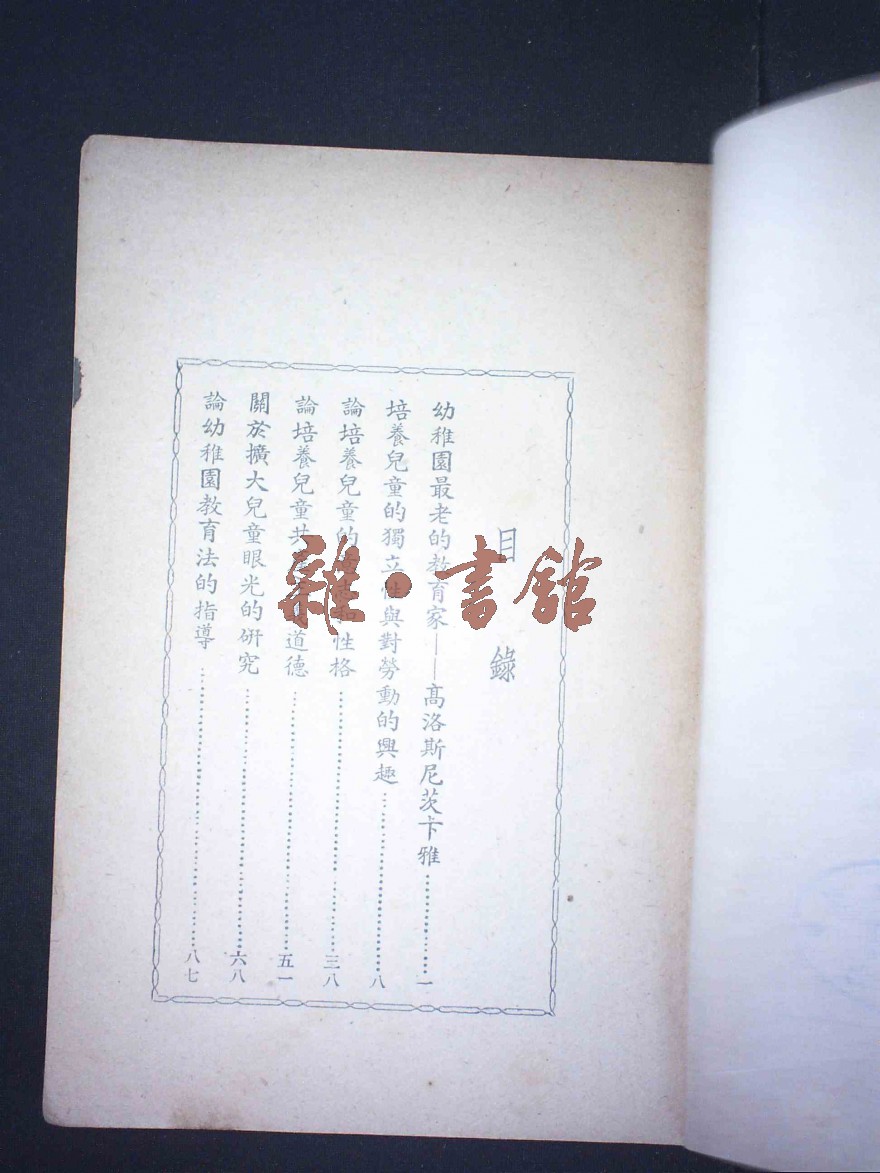 目錄
幼稚園最老的教育家——高洛斯尼茨卡雅…………一
培養兒童的獨立性與對勞動的興趣…………八
論培養兒童的志和性格…………三八
論培養兒童共道德…………五一
關於擴大兒童眼光的研究…………六八
論幼稚園教育法的指導…………八七
雜·書館